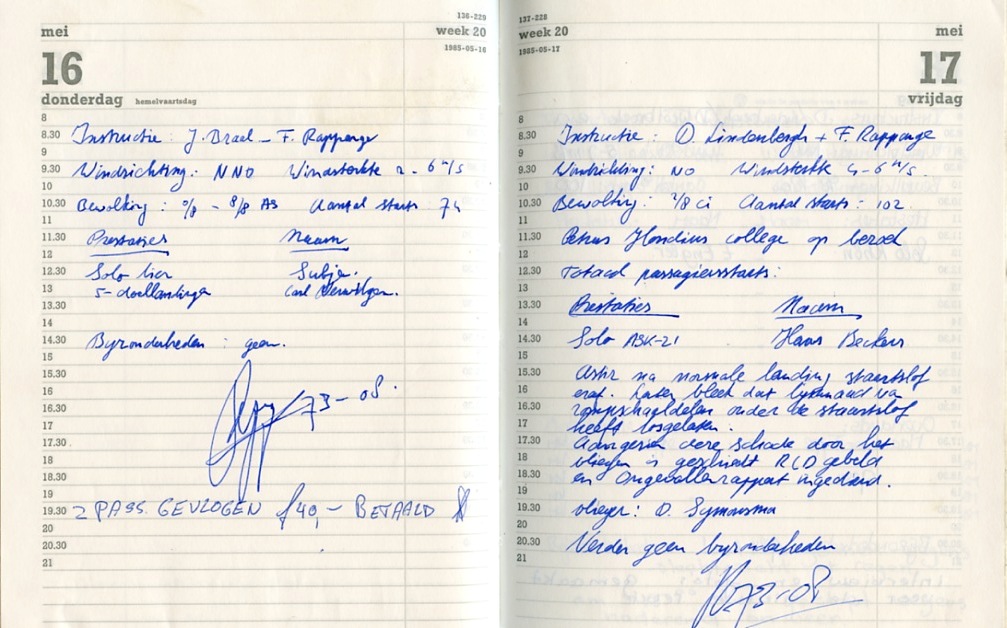 136-229
mei week 20
1985-05-16
16
donderdag hemelvaartsdag
8
8.30 Instructie : J. Brael - F. Rappange
9
9.30 Windrichting : NNO Windsterkte 2 - 6 m/s
10
10.30 Bewolking : 0/8 - 8/8 AS Aantal starts 74
11
11.30 Prestaties Naam
12
12.30 Solo lier
13 5-doellandingen Carl
13.30
14
14.30 Byzonderheden : geen.
15
15.30
16 73-08
16.30
17
17.30
18
18.30
19
19.30 2 PASS. GEVLOGEN f 40,- BETAALD
20
20.30
21
137-228
week 20 mei
1985-05-17
17
vrijdag
8
8.30 Instructie : D. Lindenbergh + F. Rappange
9
9.30 Windrichting : NO Windsterkte 4-6 m/s.
10
10.30 Bewolking : /8 ci Aantal starts : 102
11
11.30 Petrus Hondius college op bezoek
12
12.30 Totaal passagiersstarts :
13
13.30 Prestaties Naam
14
14.30 Solo ASK-21 Hans Beckers
15
15.30 Astir na normale landing staartslof
16 eraf. Later bleek dat van
16.30 rompschaaldelen onder de staartslof
17 heeft losgelaten.
17.30 Aangezien deze schade door het
18 vliegen is geschiedt RLD gebeld
18.30 en Ongevallenrapport ingediend.
19
19.30 vlieger : D.
20
20.30 Verder geen byzonderheden
21
73-08